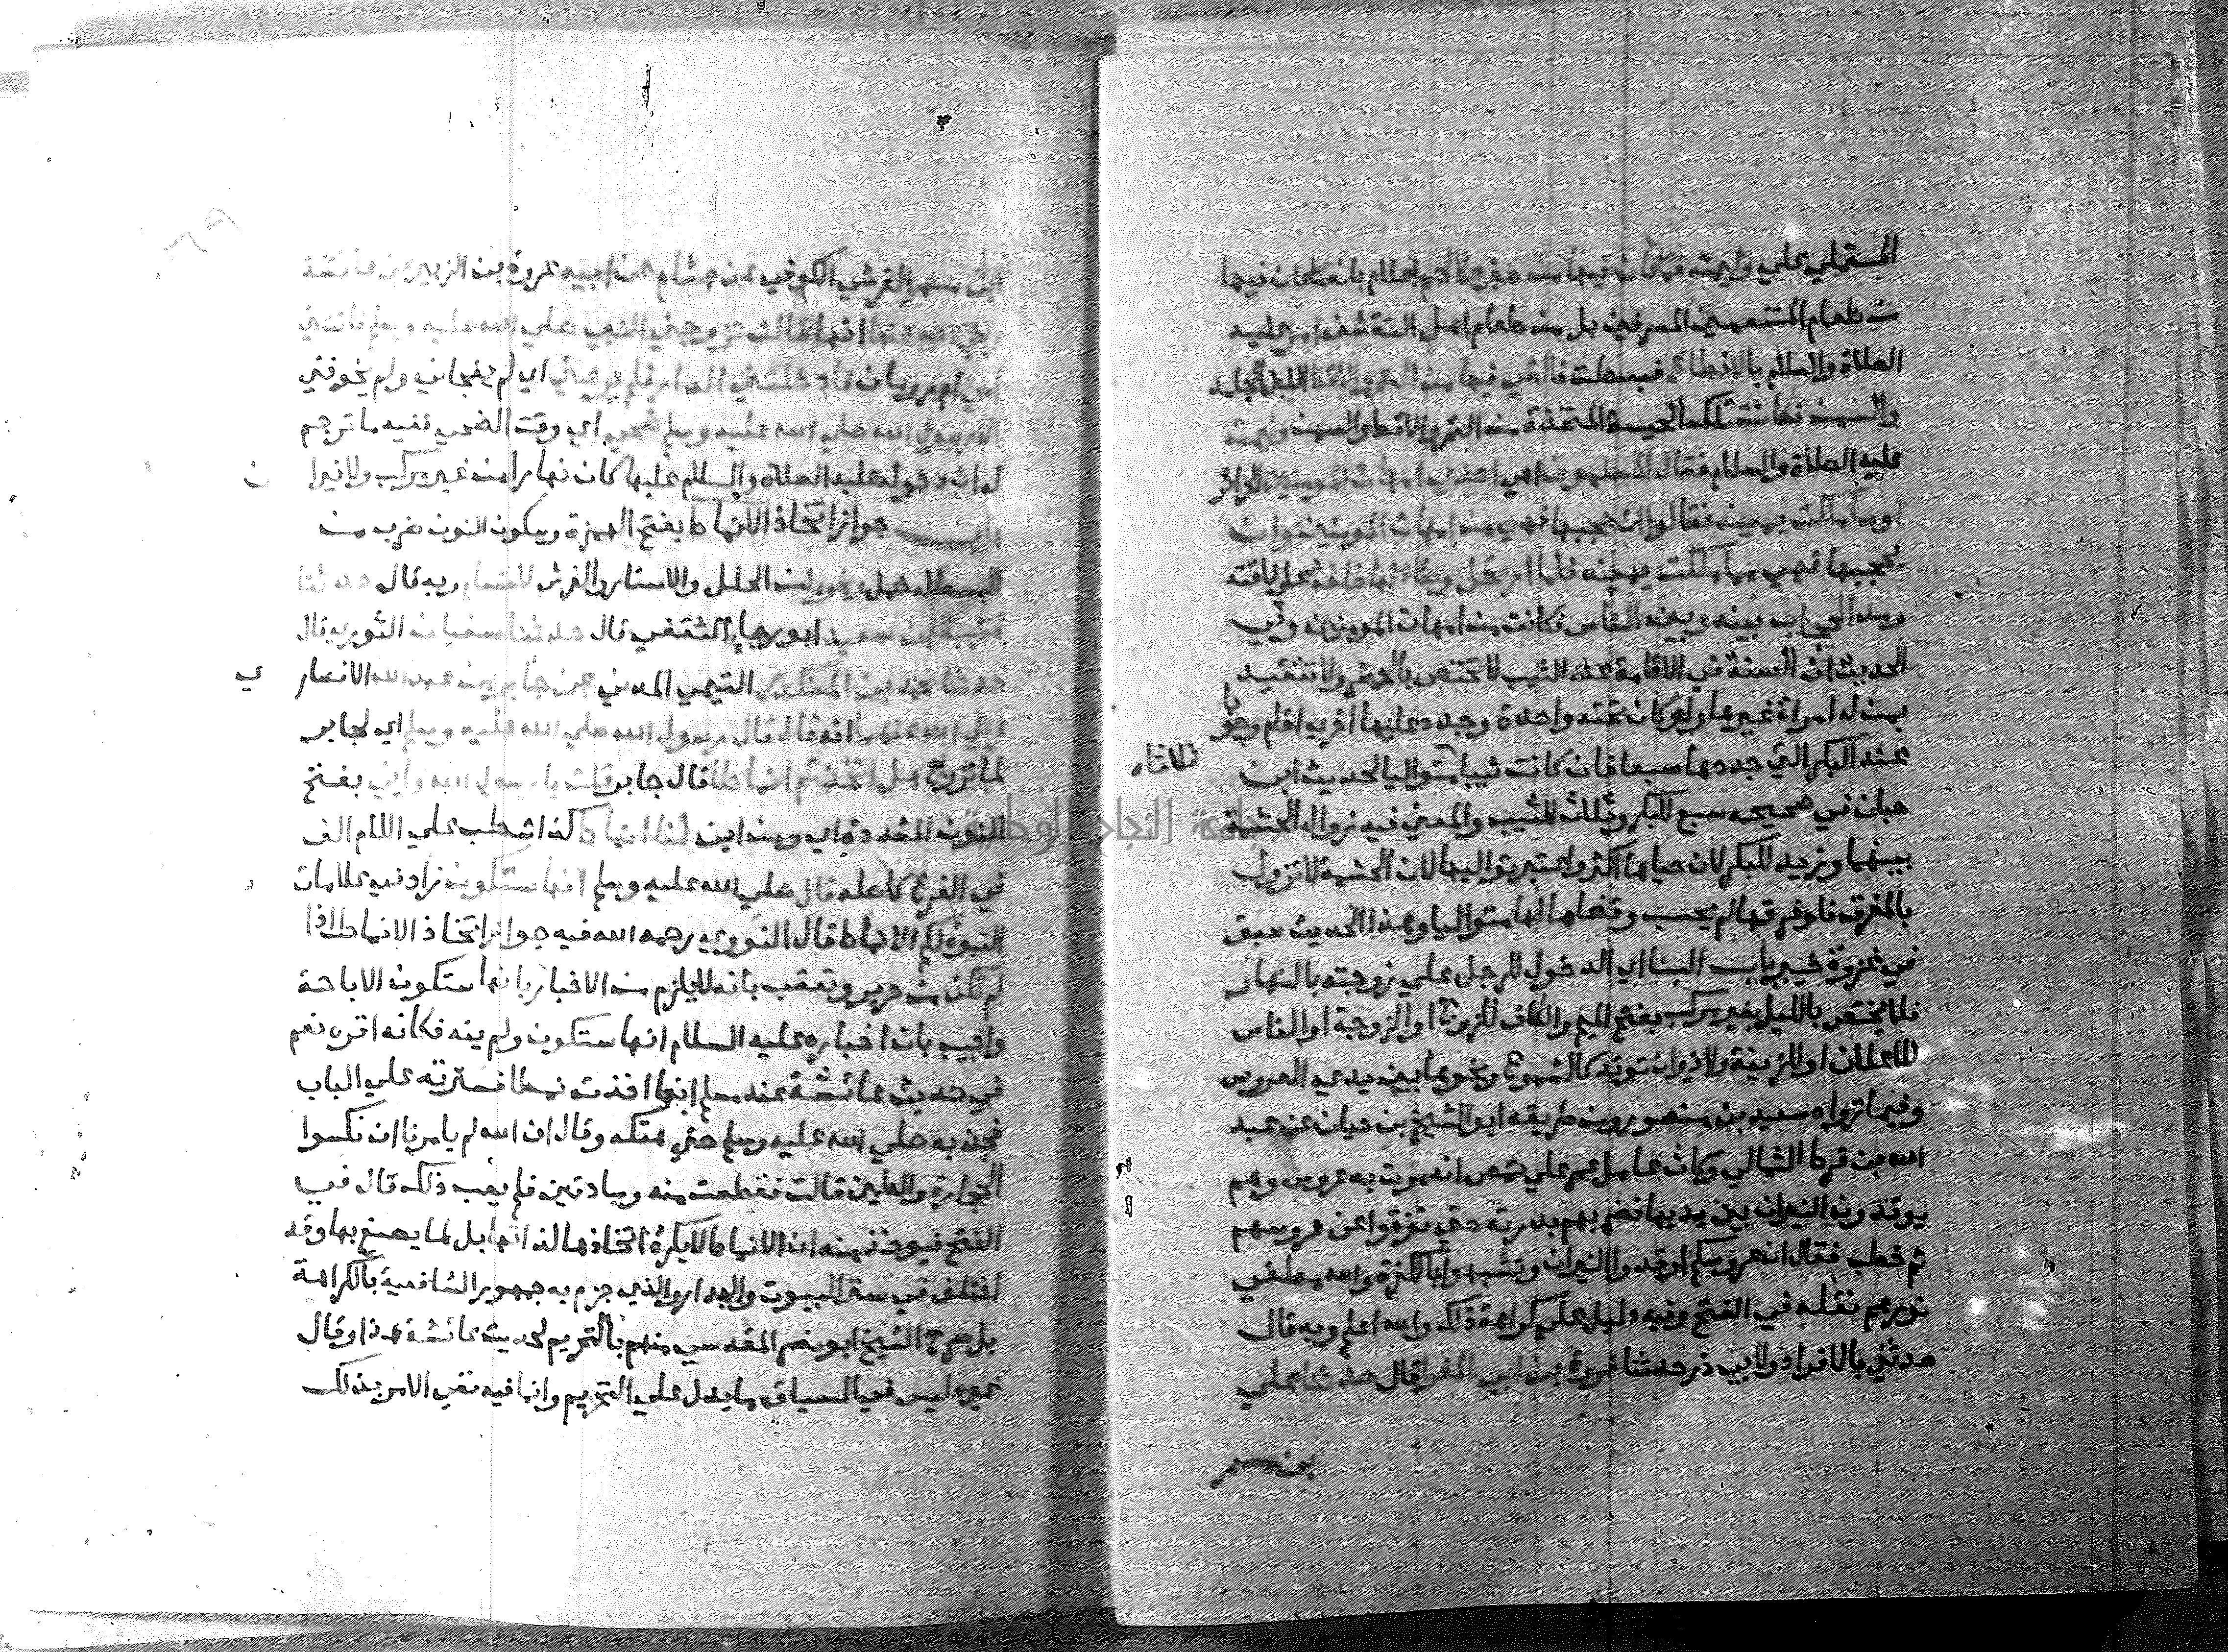 المستملي علي وليمته فما كان فيها من خبز ولا لحم اعلام بانه ما كان فيها
من طعام المتنعمين المسرفين بل من طعام اهل التقشف امر عليه
الصلاة والسلام بالانطاع فبسطت فالقي فيها من التمر والاقط اللبن الجامد
والسمن فكانت تلك الحيسة المتخذة من التمر والاقط والسمن وليمته
عليه الصلاة والسلام فقال المسلمون اهي احدي امهات المومنين الحراير
او مما ملكت يمينه فقالوا ان حجبها فهي من امهات المومنين وان لم
يحجبها فهي مما ملكت يمينه فلما ارتحل وطا لها خلفه علي ناقته
ومد الحجاب بينه وبين الناس فكانت من امهات المومنين وفي
الحديث ان السنة في الاقامة عند الثيب لا تختص بالحضر ولا تتقيد
بمن له امراة غيرها ولو كان تحته واحدة وجدد عليها اخري اقام وجوبا
عند البكر التي جددها سبعا فان كانت ثيبا متواليا لحديث ابن
ثلاثا
حبان في صحيحه سبع للبكر وثلاث للثيب والمعني فيه زوال الحشمة
بينهما وزيد للبكر لان حياها اكثر واعتبر تواليها لان الحشمة لا تزول
بالمفرق فلو فرقها لم يحسب وقضاها لها متواليا وهذا الحديث سبق
في غزوة خيبر باب البنا اي الدخول للرجل علي زوجته بالنهار
فلا يختص بالليل بغير مركب بفتح الميم والكاف للزوج او الزوجة او الناس
للاعلان او للزينة ولا نيران توقد كالشموع ونحوها بين يدي العروس
وفيما رواه سعيد بن منصور ومن طريقه ابو الشيخ بن حيان عن عبد
الله بن قرط الثمالي وكان عامل عمر علي حمص انه مرت به عروس وهم
يوقدون النيران بين يديها فضربهم بدرته حتي تفرقوا عن عروسهم
ثم خطب فقال ان عروسكم اوقدوا النيران وتشبهوا بالكفرة والله مطفي
نورهم نقله في الفتح وفيه دليل علي كراهة ذلك والله اعلم وبه قال
حدثني بالافراد ولابي ذر حدثنا فروة بن ابي المغرا قال حدثنا علي
بن مسهر
ابن مسهر القرشي الكوفي عن هشام عن ابيه عروة بن الزبير عن عايشة
رضي الله عنها انها قالت تزوجني النبي صلي الله عليه وسلم فاتتني
امي ام رومان فادخلتني الدار فلم يرعني اي لم يفجاني ولم يخوفني
الا رسول الله صلي الله عليه وسلم ضحي اي وقت الضحي ففيه ما ترجم
له ان دخوله عليه الصلاة والسلام عليها كان نهارا من غير مركب ولا نيران
باب جواز اتخاذ الانماط بفتح الهمزة وسكون النون ضرب من
البسط له خمل ونحوها من الحلل والاستار والفرش للنساء وبه قال حدثنا
قتيبة بن سعيد ابو رجاء الثقفي قال حدثنا سفيان الثوري قال
حدثنا محمد بن المنكدر التيمي المدني عن جابر بن عبد الله الانصاري
رضي الله عنهما انه قال قال رسول الله صلي الله عليه وسلم اي لجابر
لما تزوج هل اتخذتم انماطا قال جابر قلت يا رسول الله واني بفتح
النون المشددة اي ومن اين لنا انماط كذا شطب علي اللام الف
في الفرع كاصله قال صلي الله عليه وسلم انها ستكون زاد في علامات
النبوة لكم الانماط قال النووي رحمه الله فيه جواز اتخاذ الانماط اذا
لم تكن من حرير وتعقب بانه لا يلزم من الاخبار بانها ستكون الاباحة
واجيب بان اخباره عليه السلام انها ستكون ولم ينه فكانه اقره نعم
في حديث عائشة عند مسلم انها اخذت نمطا فسترته علي الباب
فجذبه صلي الله عليه وسلم حتي هتكه وقال ان الله لم يامرنا ان نكسوا
الحجارة والطين قالت فقطعت منه وسادتين فلم يعب ذلك قال في
الفتح فيوخذ منه ان الانماط لا يكره اتخاذها لذاتها بل لما يصنع بها وقد
اختلف في ستر البيوت والجدار والذي جزم به جمهور الشافعية بالكراهة
بل صرح الشيخ ابو نصر المقدسي منهم بالتحريم لحديث عائشة هذا وقال
غيره ليس في السياق ما يدل علي التحريم وانما فيه نفي الامر بذلك
جامعة النجاح الوطنية